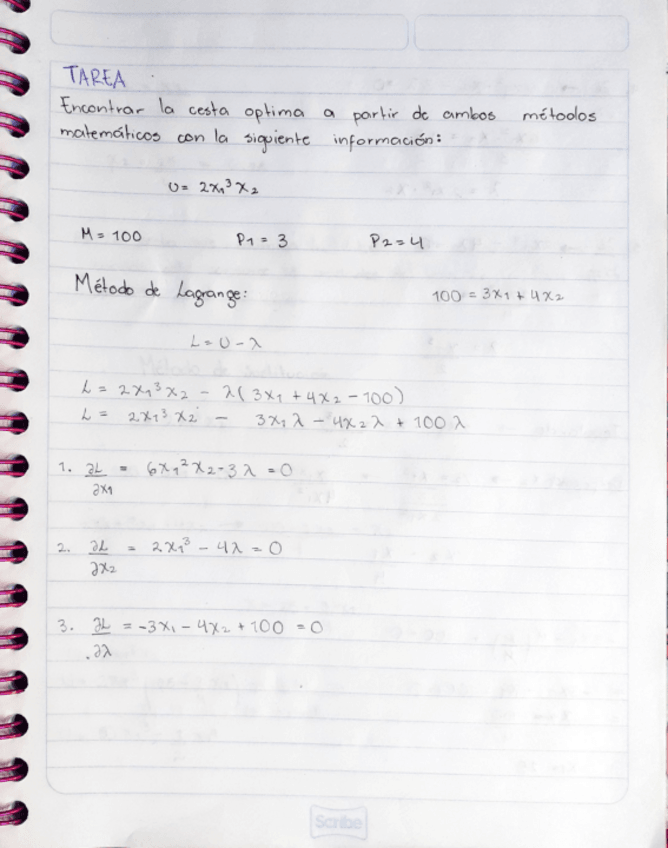 TAREA
Encontrar la cesta optima a partir de ambos métodos
matemáticos con la siguiente información:
U = 2x₁³x₂
M = 100 P₁ = 3 P₂ = 4
Método de Lagrange: 100 = 3x₁ + 4x₂
L = U - λ
L = 2x₁³x₂ - λ(3x₁ + 4x₂ - 100)
L = 2x₁³x₂ - 3x₁λ - 4x₂λ + 100λ
1. ∂L/∂x₁ = 6x₁²x₂ - 3λ = 0
2. ∂L/∂x₂ = 2x₁³ - 4λ = 0
3. ∂L/∂λ = -3x₁ - 4x₂ + 100 = 0
Scribe